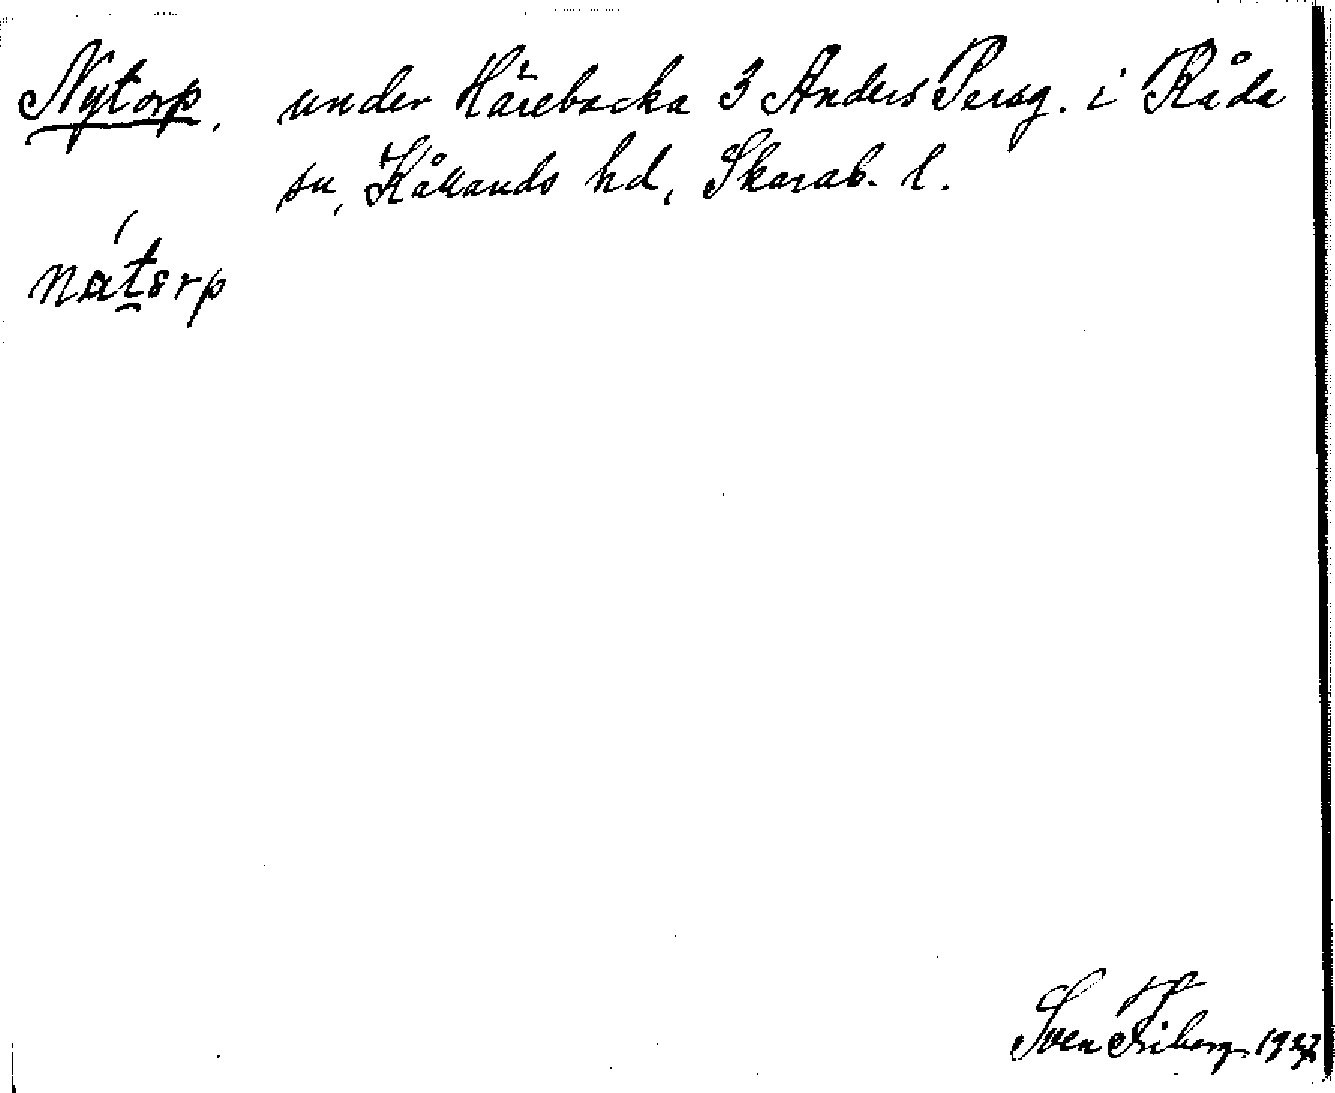 Nytorp, under Härebacka 3 Anders Persg. i Råda
sn, Kållands hd, Skarab. l.
Sven Friberg 1927